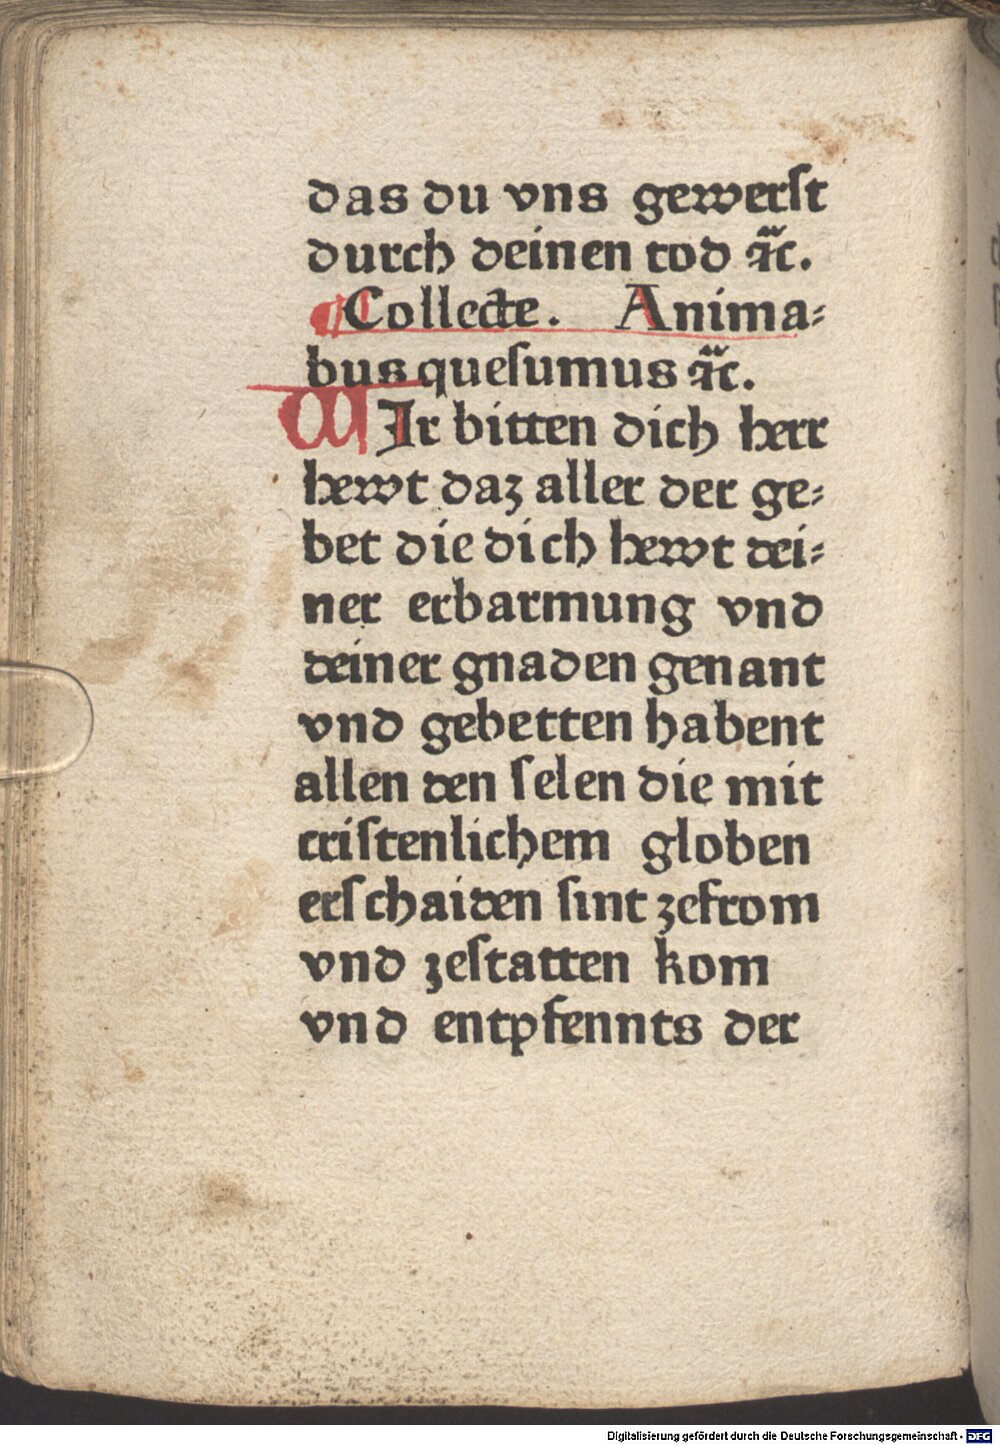 das du vns gewerſt
durch deinen tod ꝛc̃.
¶ Collecte. Anima⸗
bus queſumus ꝛc̃.
WIr bitten dich herr
hewt daz aller der ge⸗
bet die dich hewt dei⸗
ner erbarmung vnd
deiner gnaden genant
vnd gebetten habent
allen den ſelen die mit
criſtenlichem globen
erſchaiden ſint zefrom
vnd zeſtatten kom
vnd entpfennts der
Digitalisierung gefördert durch die Deutsche Forschungsgemeinschaft - DFG